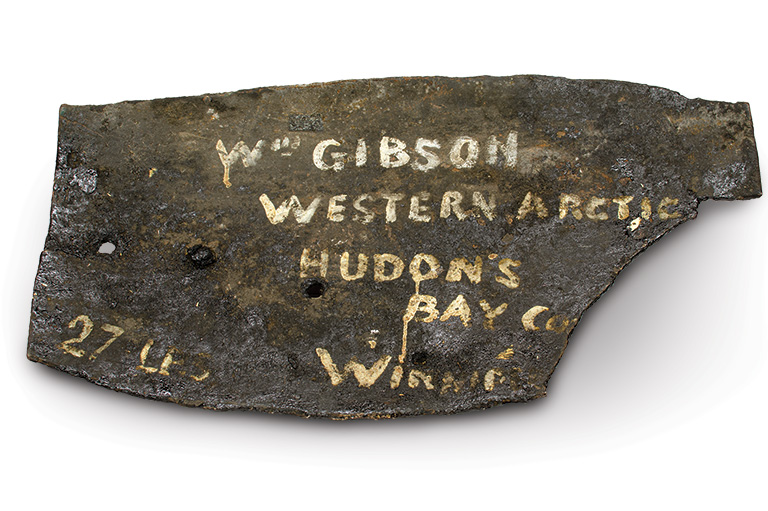 Wm GIBSON
WESTERN ARCTIC
HUDON'S
BAY Co
27 LBS